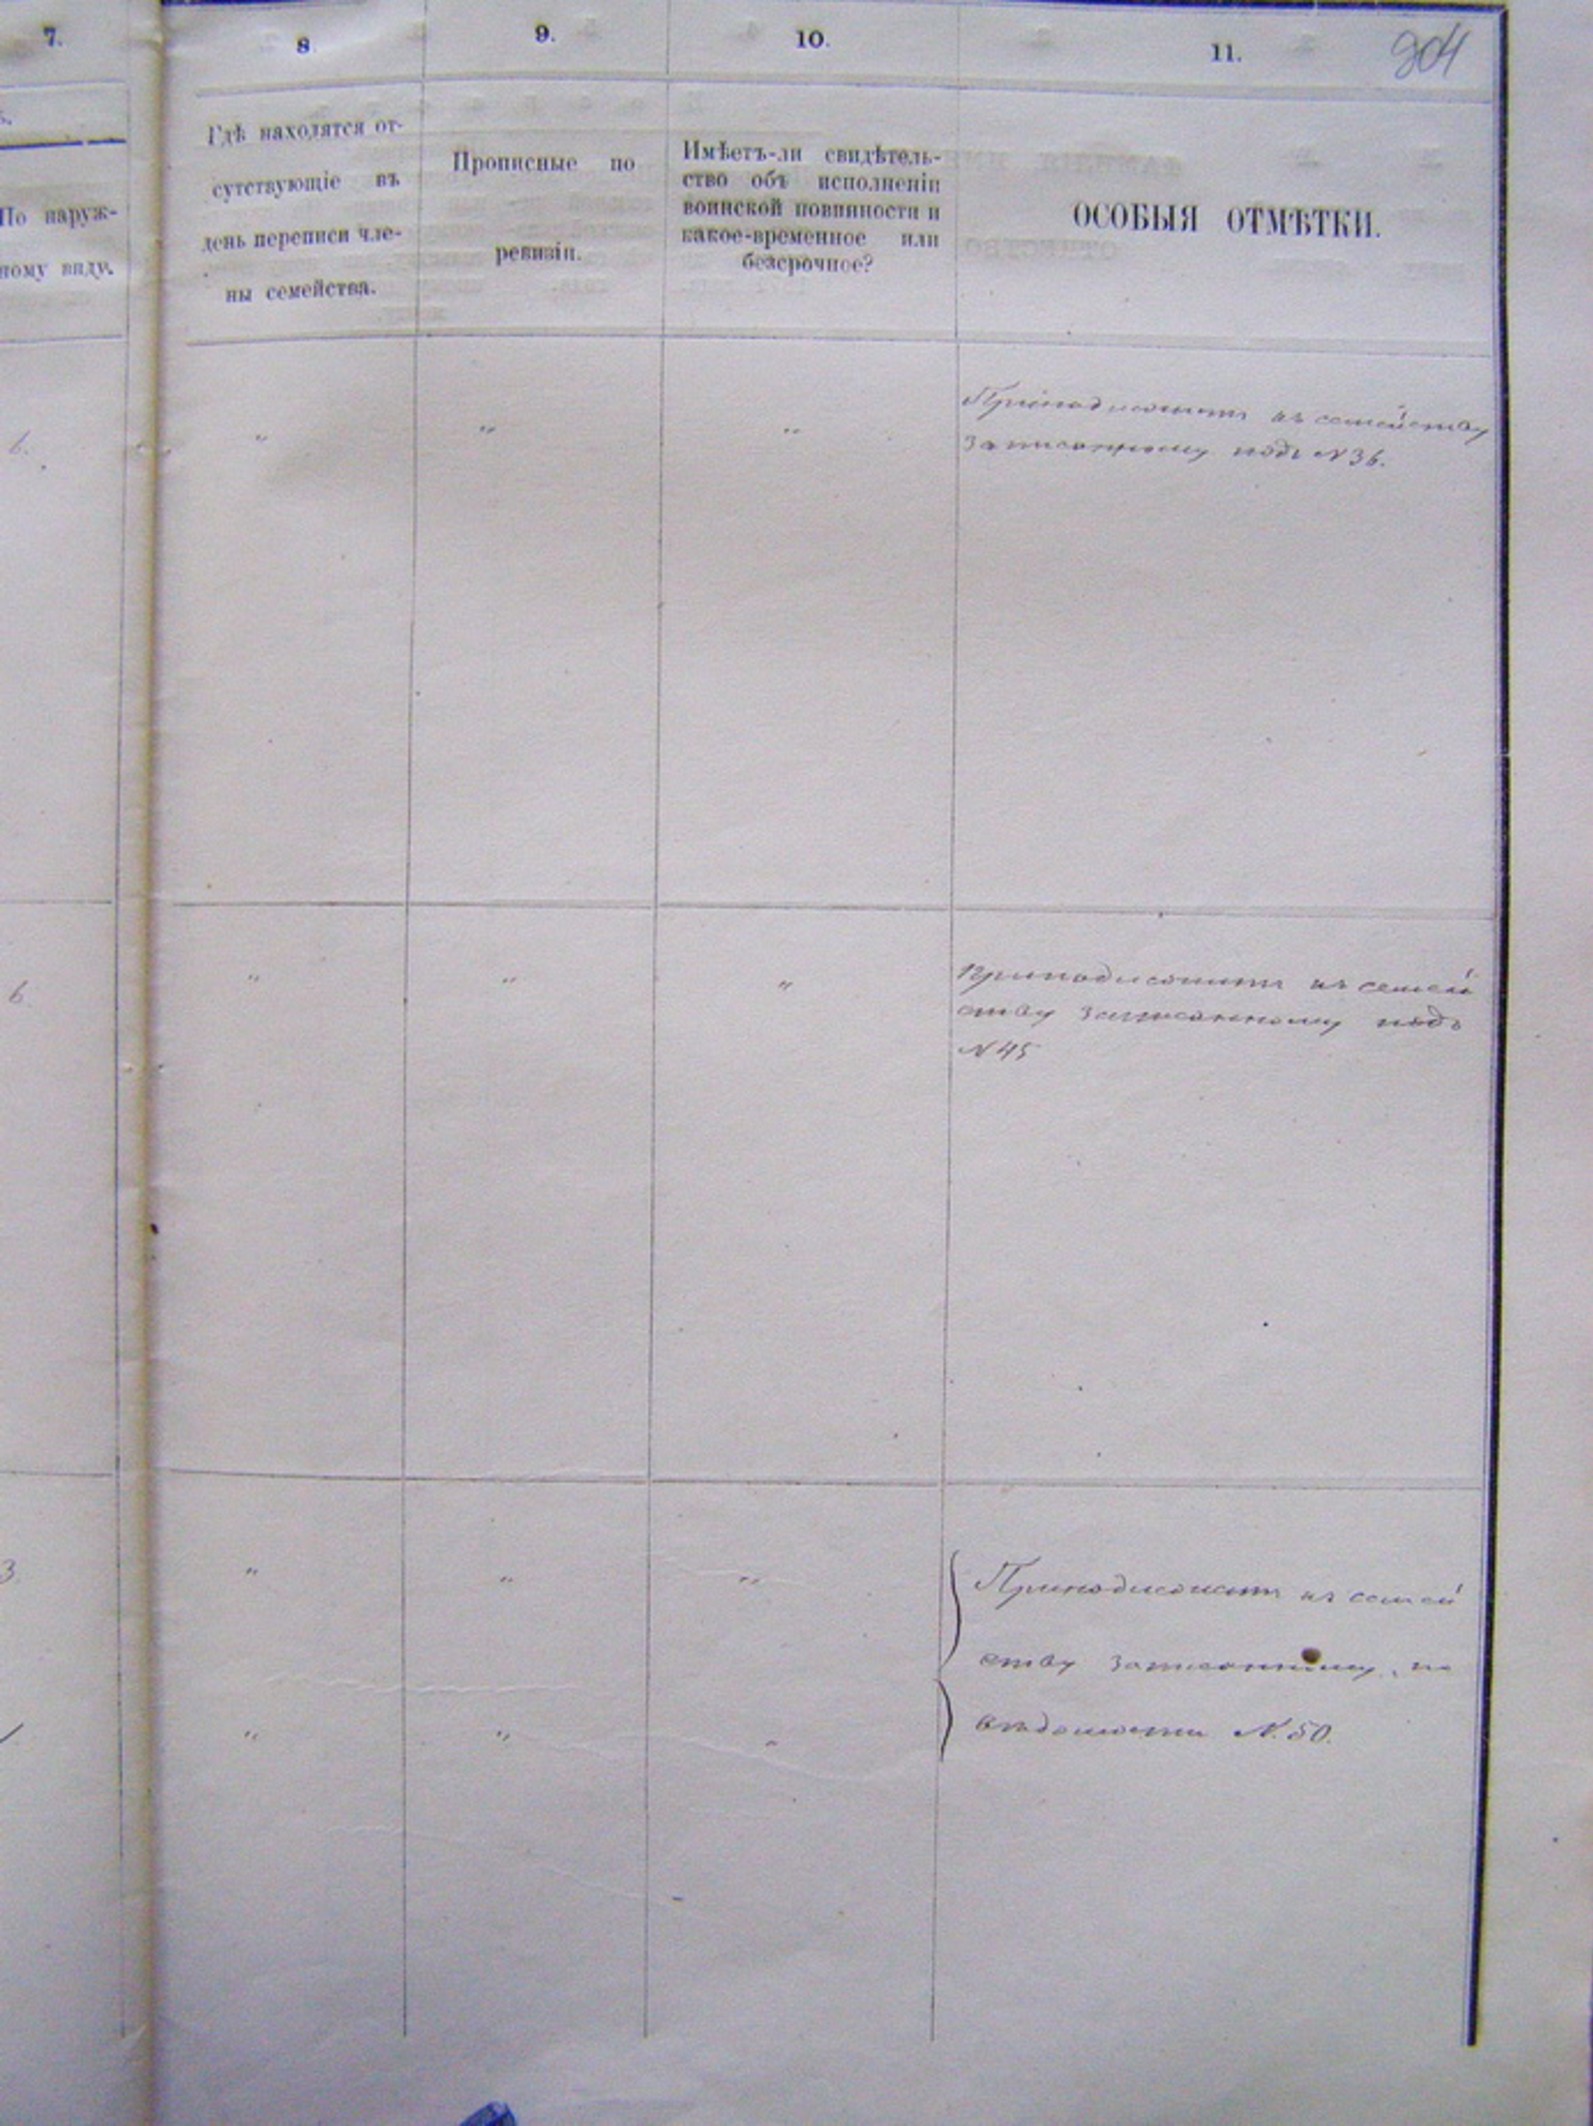 7.
8
9.
10.
11.
204
По наруж-
ному виду.
Гдѣ находятся от-
сутствующіе въ
день переписи чле-
ны семейства.
Прописные по
ревизіи.
Имѣетъ-ли свидѣтель-
ство объ исполненіи
воинской повинности и
какое-временное или
безсрочное?
ОСОБЫЯ ОТМѢТКИ.
6.
"
"
"
къ семейству
записанному подъ N 36.
6.
"
"
"
къ семей
ству записанному подъ
N 45
3
"
"
"
къ семей
ству записанному по
вѣдомости N. 50.
"
"
"